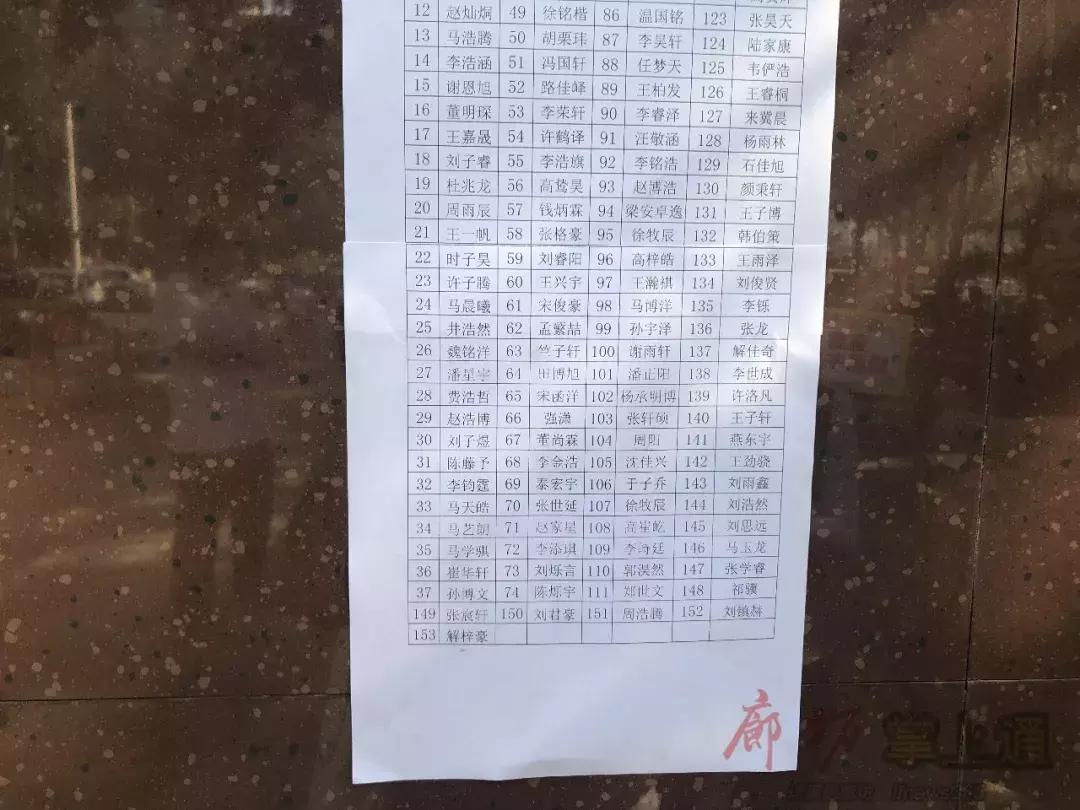 12 赵灿炯 49 徐铭楷 86 温国铭 123 张昊天
13 马浩腾 50 胡栗玮 87 李昊轩 124 陆家康
14 李浩涵 51 冯国轩 88 任梦天 125 韦俨浩
15 谢恩旭 52 路佳峰 89 王柏发 126 王睿桐
16 董明琛 53 李荣轩 90 李睿泽 127 来冀晨
17 王嘉晟 54 许鹤译 91 汪敬涵 128 杨雨林
18 刘子睿 55 李浩旗 92 李铭浩 129 石佳旭
19 杜兆龙 56 高鸷昊 93 赵博浩 130 颜秉轩
20 周雨辰 57 钱炳霖 94 梁安卓逸 131 王子博
21 王一帆 58 张格豪 95 徐牧辰 132 韩伯策
22 时子昊 59 刘睿阳 96 高梓皓 133 王雨泽
23 许子腾 60 王兴宇 97 王瀚祺 134 刘俊贤
24 马晨曦 61 宋俊豪 98 马博洋 135 李铄
25 井浩然 62 孟繁喆 99 孙宇泽 136 张龙
26 魏铭洋 63 竺子轩 100 谢雨轩 137 解佳奇
27 潘星宇 64 田博旭 101 潘正阳 138 李世成
28 费浩哲 65 宋函洋 102 杨承明博 139 许洛凡
29 赵浩博 66 强潇 103 张轩硕 140 王子轩
30 刘子煜 67 董尚霖 104 周阳 141 燕东宇
31 陈藤予 68 李金浩 105 沈佳兴 142 王劲骁
32 李钧霆 69 秦宏宇 106 于子乔 143 刘雨鑫
33 马天皓 70 张世延 107 徐牧辰 144 刘浩然
34 马艺朗 71 赵家星 108 高崔屹 145 刘思远
35 马学骐 72 李添琪 109 146 马玉龙
36 崔华轩 73 刘烁言 110 郭淏然 147 张学睿
37 孙博文 74 陈烁宇 111 郑世文 148 祁骥
149 张宸轩 150 刘君豪 151 周浩腾 152 刘镇赫
153 解梓豪
廊坊 掌上通